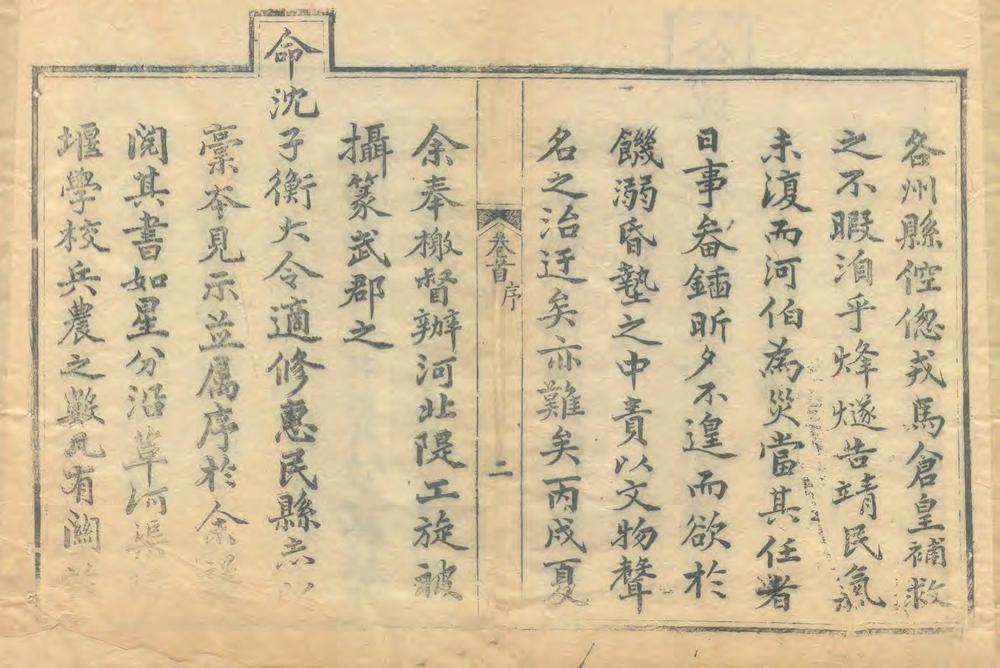 各州縣倥傯戎馬倉皇補救
之不暇洎乎烽燧告靖民氣
未復而河伯為災當其任者
日事畚鍤昕夕不遑而欲於
饑溺昏墊之中責以文物聲
名之治迂矣亦難矣丙戌夏
卷首序
二
余奉檄督辦河北隄工旋被
命
攝篆武郡之
沈子衡大令適修惠民縣志以
稾夲見示並属序於余
閲其書如星分沿革河渠
堰學校兵農之數凡有關